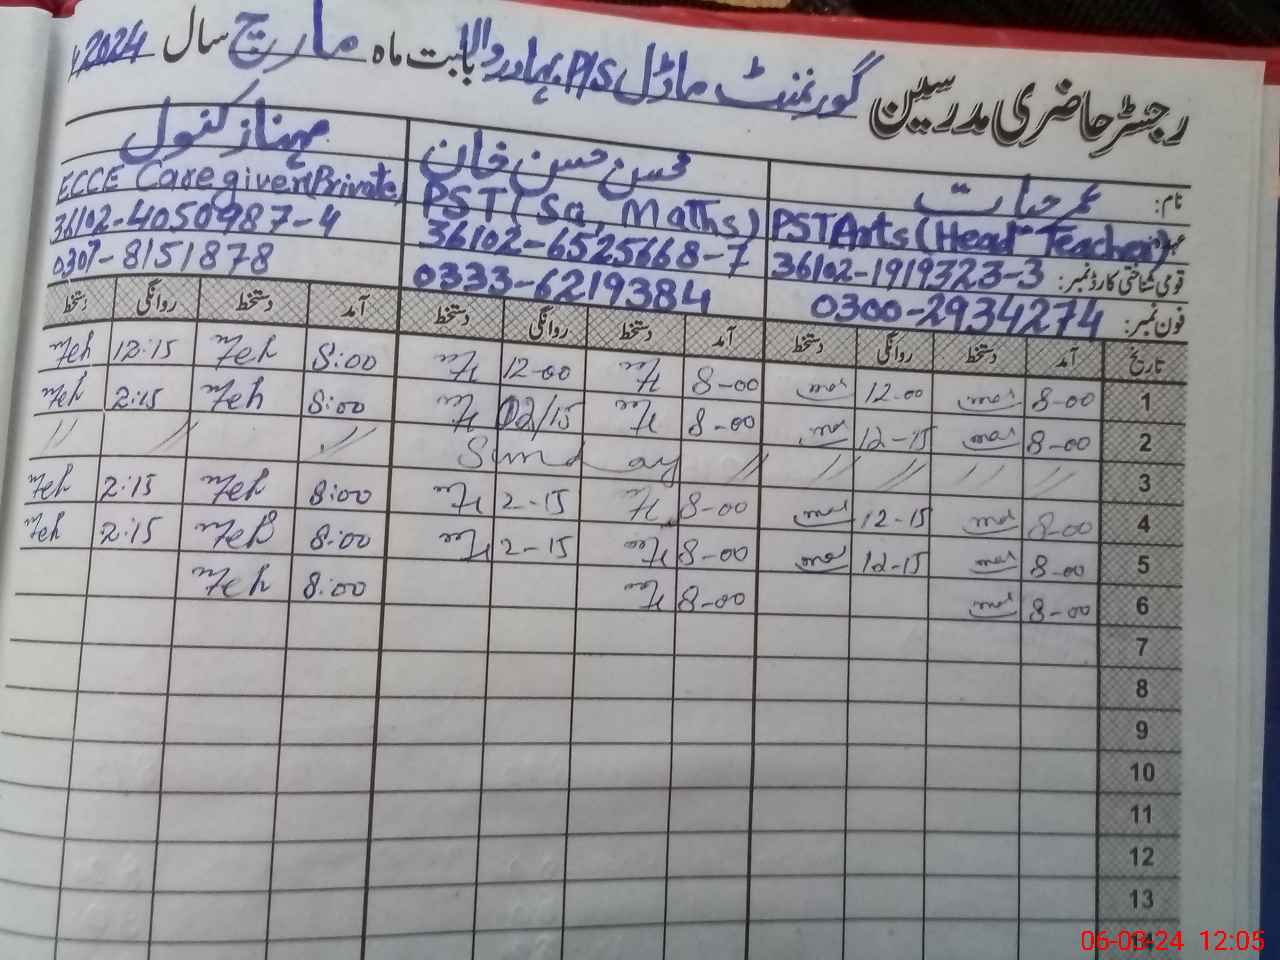 رجسٹر حاضری مدرسین گورنمنٹ ماڈل P/S بہادر والا بابت ماہ مارچ سال 2024ء
نام: عمر حیات محسن حسن خان مہناز کنول
عہدہ: PST Arts (Head Teacher) PST (Sc, Maths) ECCE Caregiver (Private)
قومی شناختی کارڈ نمبر: 36102-1919323-3 36102-6525668-7 36102-4050987-4
فون نمبر: 0300-2934274 0333-6219384 0307-8151878
تاریخ آمد دستخط روانگی دستخط آمد دستخط روانگی دستخط آمد دستخط روانگی دستخط
1 8-00 12-00 8-00 12-00 8:00 Meh 12:15 Meh
2 8-00 12-15 8-00 02/15 8:00 Meh 2:15 Meh
3 // // // // // Sunday // // //
4 8-00 12-15 8-00 2-15 8:00 Meh 2:15 Meh
5 8-00 12-15 8-00 2-15 8:00 Meh 2:15 Meh
6 8-00 8-00 8:00 Meh
7
8
9
10
11
12
13
14
06-03-24 12:05